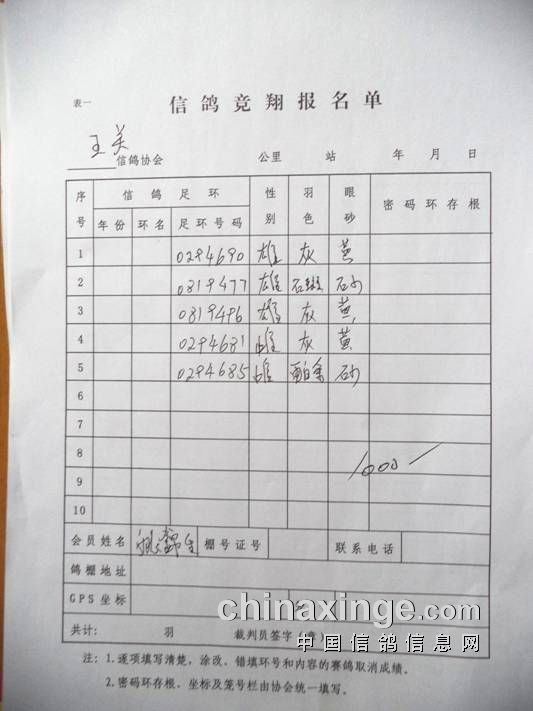 表一
信鸽竞翔报名单
王关
信鸽协会 公里 站 年 月 日
序号 信鸽足环 性别 羽色 眼砂 密码环存根
年份 环名 足环号码
1 0294690 雄 灰 黄
2 0819477 雄 石斑 砂
3 0819496 雄 灰 黄
4 0294681 雌 灰 黄
5 0294685 雌 砂
6
7
8
1000
9
10
会员姓名 棚号证号 联系电话
鸽棚地址
GPS坐标
共计: 羽 裁判员签字(章)
chinaxinge.com
中国信鸽信息网
注:1.逐项填写清楚,涂改、错填环号和内容的赛鸽取消成绩。
2.密码环存根、坐标及笼号栏由协会统一填写。